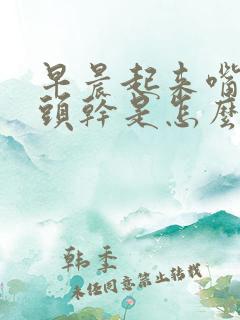 早晨起来嘴
頭幹是怎麼
韩季
未经同意禁止转载